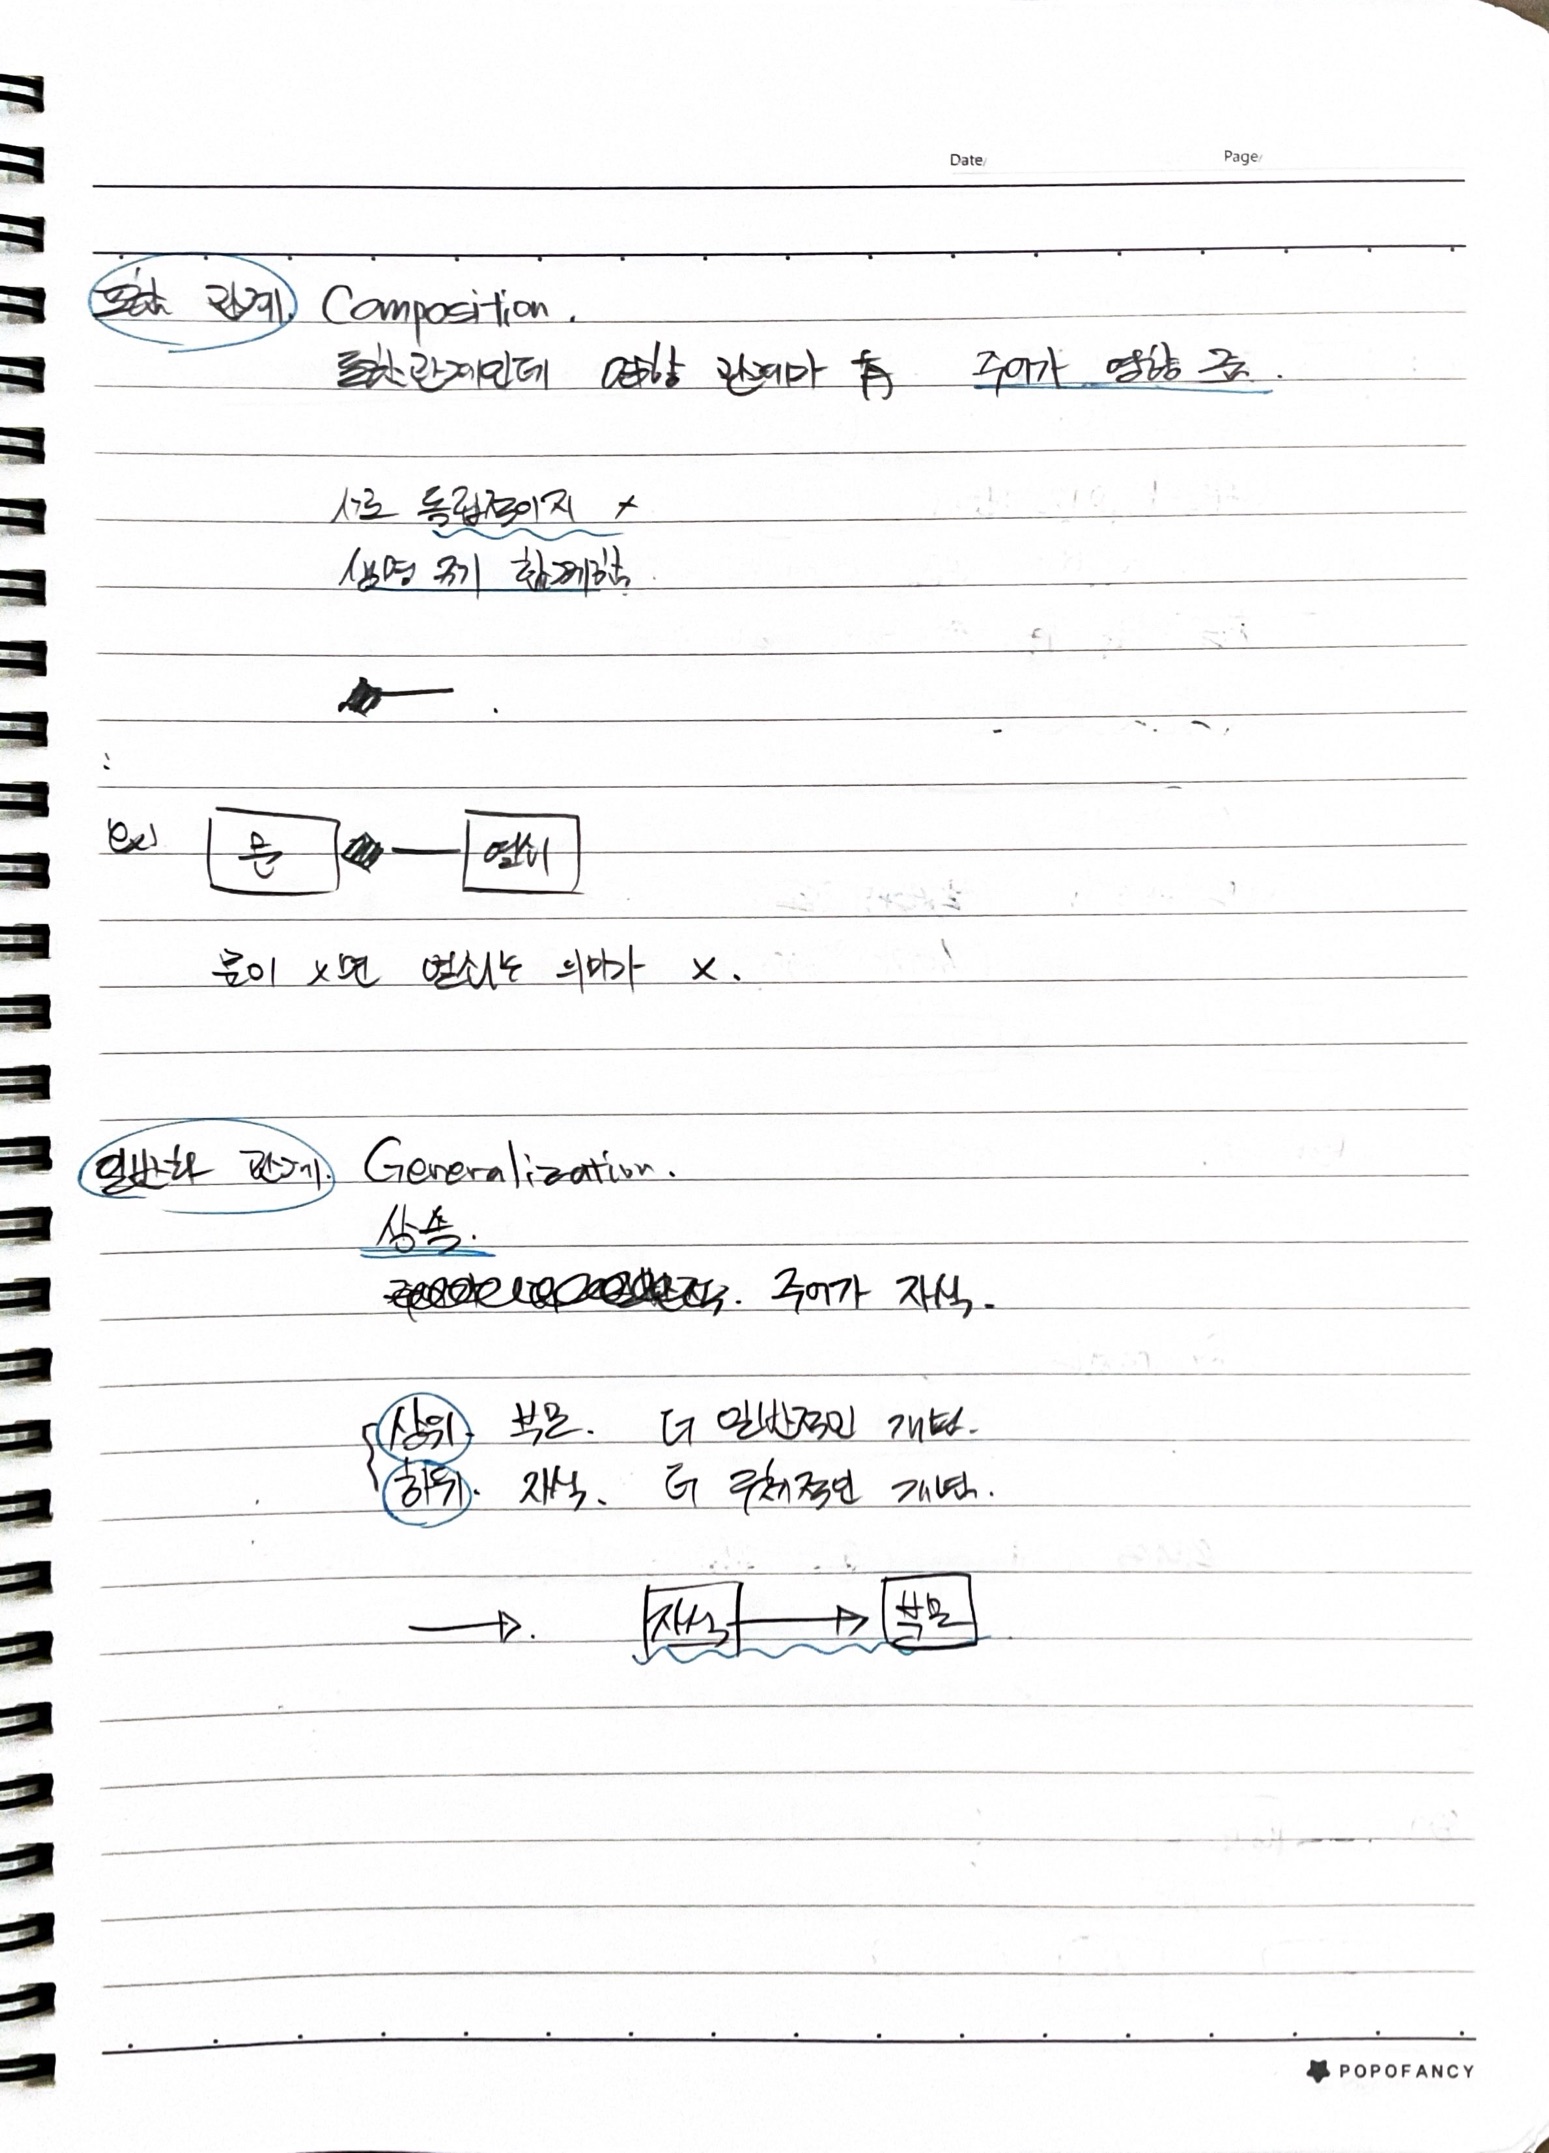 Date/ Page/
포함 관계. Composition.
포함관계인데 영향 관계마 有 주어가 영향 줌.
서로 독립적이지 x
생명 주기 함께함.
ex) 문 열쇠
문이 x면 열쇠는 의미가 x.
일반화 관계. Generalization.
상속.
주어가 자식.
상위. 부모. 더 일반적인 개념.
하위. 자식. 더 구체적인 개념.
자식 부모
POPOFANCY